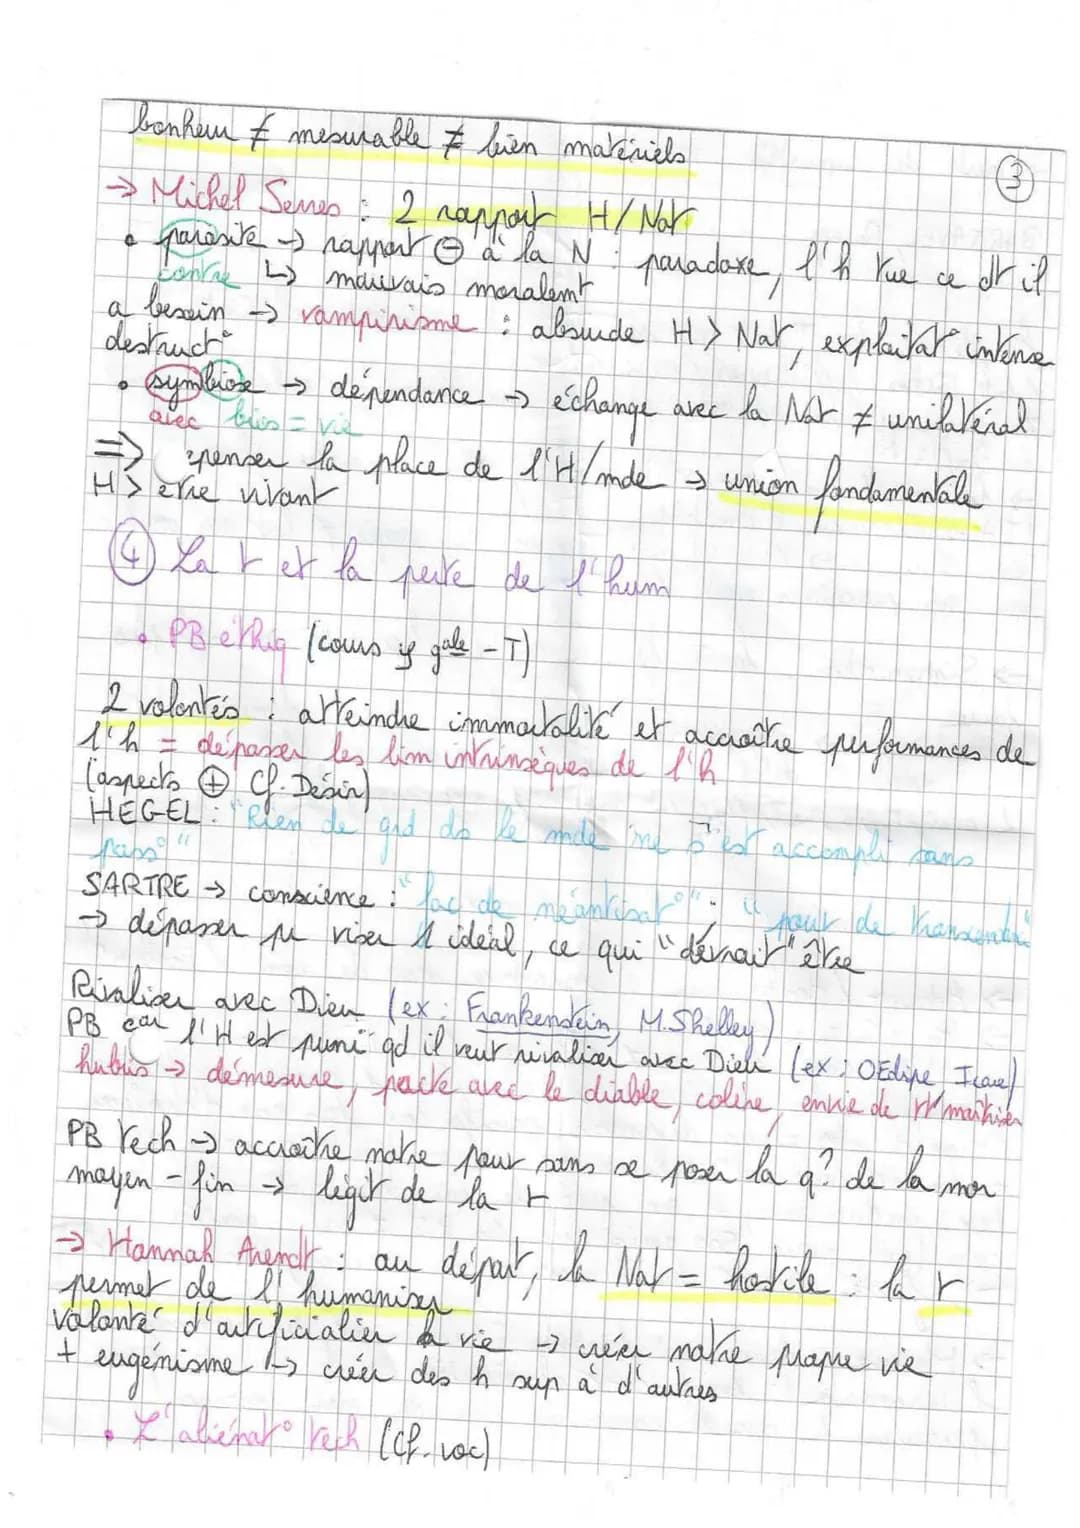 bonheur ≠ mesurable ≠ bien matériels
③
→ Michel Serres : 2 rapport H/Nat
• parasite → rapport ⊖ à la N : paradoxe, l'h tue ce dt il
contre ↳ mauvais moralemt
a besoin → vampirisme : absurde H > Nat, exploitat° intense
destruct°
• symbiose → dépendance → échange avec la Nat ≠ unilatéral
avec bios = vie
⇒ repenser la place de l'H/mde → union fondamentale
H > être vivant
④ La t et la perte de l'hum
• PB éthiq (cours gale - T)
2 volontés : atteindre immortalité et accroître performances de
l'h = dépasser les lim intrinsèques de l'h
(aspects ⊕ Cf. Désir)
HEGEL : "Rien de grd ds le mde ne s'est accompli sans
pass°"
SARTRE → conscience : "fac de néantisat°" ; "pouv de transcender"
→ dépasser pr viser 1 idéal, ce qui "devrait" être
Rivaliser avec Dieu (ex : Frankenstein, M. Shelley)
PB car l'H est puni qd il veut rivaliser avec Dieu (ex : OEdipe, Icare)
hubris → démesure, pacte avec le diable, colère, envie de tt maîtriser
PB tech → accroître notre pouv sans se poser la q? de la mor
moyen - fin → légit de la t
→ Hannah Arendt : au départ, la Nat = hostile : la t
permet de l'humaniser
volonté d'artificialier la vie → créer notre propre vie
+ eugénisme ↳ créer des h sup à d'autres
• L'aliénat° tech (Cf. voc)